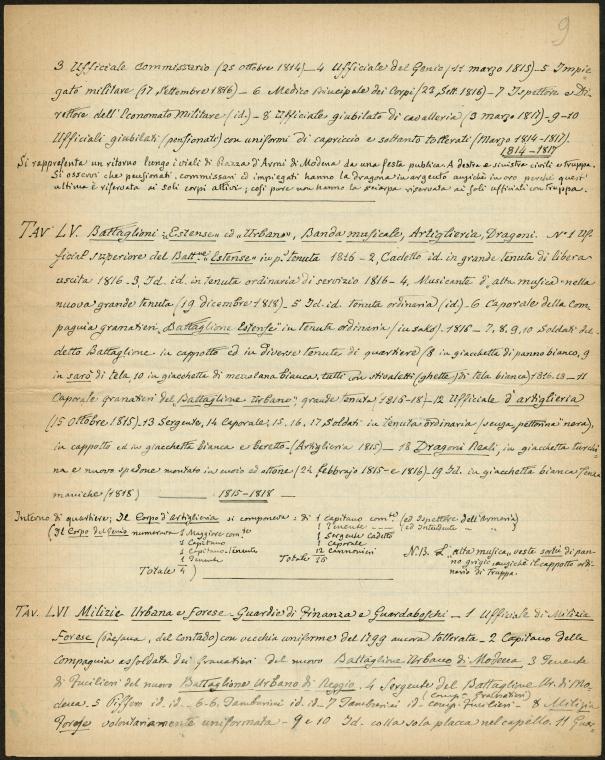 9
3 Ufficiale Commissario (25 ottobre 1814) — 4 Ufficiale del Genio (11 marzo 1815) — 5 Impie
gato militare (17 settembre 1816) — 6 Medico Principale dei Corpi (23 Sett. 1816) — 7 Ispettore e Di-
rettore dell'Economato Militare (id.) — 8 Ufficiale giubilato di cavalleria (3 marzo 1817) — 9-10
Ufficiali giubilati (pensionati) con uniformi di capriccio e soltanto tollerati (Marzo 1814-1817).
1814-1817
Si rappresenta un ritorno lungo i viali di Piazza d'Armi di Modena da una festa publica. A destra e sinistra civili e truppa.
Si osservi che pensionati, commissari ed impiegati hanno la Dragona in argento anzichè in oro perchè quest'
ultima è riservata ai soli corpi attivi; così pure non hanno la sciarpa riservata ai soli ufficiali con truppa.
TAV. LV. Battaglioni "Estense" ed "Urbano", Banda musicale, Artiglieria, Dragoni. N° 1 Uf-
ficial superiore del Battne "Estense" in pa tenuta 1816 — 2, Cadetto id. in grande tenuta di libera
uscita 1816 — 3, Id. id. in tenuta ordinaria di servizio 1816 — 4, Musicante d'alta musica nella
nuova grande tenuta (19 dicembre 1818) — 5 Id. id. tenuta ordinaria (id.) — 6 Caporale della Com-
pagnia granatieri "Battaglione Estense" in tenuta ordinaria (in sakò). 1816 — 7, 8, 9, 10 Soldati del
detto Battaglione in cappotto ed in diverse tenute di quartiere (8 in giacchetta di panno bianco, 9
in sarò di tela, 10 in giacchetta di mezzolana bianca, tutti con stivaletti (ghette) di tela bianca) 1816-18 — 11
Caporale granatieri del "Battaglione Urbano", grande tenuta (1816-18) — 12 Ufficiale d'artiglieria
(15 Ottobre 1815). 13 Sergente, 14 Caporale, 15, 16, 17 Soldati in tenuta ordinaria (senza pettorina nera),
in cappotto ed in giacchetta bianca e beretto — (Artiglieria 1815) — 18 Dragoni Reali, in giacchetta turchi-
na e nuovo spadone montato in cuoio ed ottone (24 febbraio 1815 — e 1816) — 19 Id. in giacchetta bianca senza
maniche (1818) — 1815-1818 —
Interno di quartiere; Il Corpo d'artiglieria si componeva: di 1 capitano comte (ed Ispettore dell'Armeria)
(Il Corpo del Genio numerava 1 Maggiore comte 1 Tenente — (ed Intendente " ")
1 Capitano 1 Sergente Cadetto
1 Capitano-Tenente 1 Caporale
1 Tenente 12 Cannonieri
Totale 4) Totale 16
N. 13. L'alta musica, veste sortù di pan-
no grigio, anzichè il cappotto ordi-
nario di truppa.
TAV. LVI Milizie Urbana e forese — Guardie di Finanza e Guardaboschi — 1 Ufficiale di Milizia
Forese (paesana, del contado) con vecchia uniforme del 1799 ancora tollerata — 2 Capitano della
Compagnia assoldata dei Granatieri del nuovo Battaglione Urbano di Modena 3 Tenente
di Fucilieri del nuovo Battaglione Urbano di Reggio. 4 Sergente del Battaglione Ur. di Mo-
dena. 5 Piffero id. id. — 6-6. Tamburini id. id. (comp. Granatieri) — 7 Tamburini id. comp. Fucilieri — 8 Milizia
Forese volontariamente uniformata — 9 e 10 Id. colla sola placca nel capello. 11 Guar-